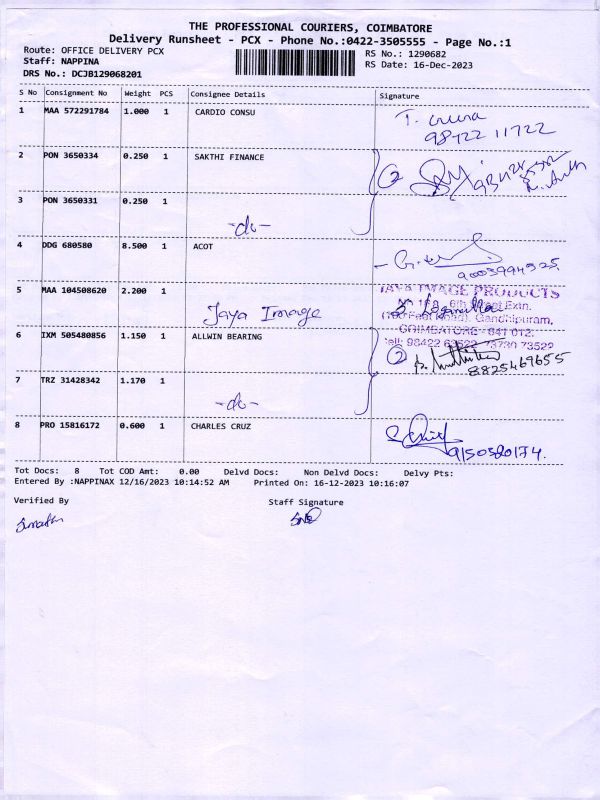 THE PROFESSIONAL COURIERS, COIMBATORE
Delivery Runsheet - PCX - Phone No.:0422-3505555 - Page No.:1
Route: OFFICE DELIVERY PCX
RS No.: 1290682
Staff: NAPPINA
RS Date: 16-Dec-2023
DRS No.: DCJB129068201
S No Consignment No Weight PCS Consignee Details Signature
1 MAA 572291784 1.000 1 CARDIO CONSU
98422 11722
2 PON 3650334 0.250 1 SAKTHI FINANCE
2
3 PON 3650331 0.250 1
-do-
4 DDG 680580 8.500 1 ACOT
9003994325
5 MAA 104508620 2.200 1
Jaya Image
JAYA IMAGE PRODUCTS
Gandhipuram,
COIMBATORE - 641 012.
6 IXM 505480856 1.150 1 ALLWIN BEARING
2
8825469655
7 TRZ 31428342 1.170 1
-do-
8 PRO 15816172 0.600 1 CHARLES CRUZ
9150580174.
Tot Docs: 8 Tot COD Amt: 0.00 Delvd Docs: Non Delvd Docs: Delvy Pts:
Entered By :NAPPINAX 12/16/2023 10:14:52 AM Printed On: 16-12-2023 10:16:07
Verified By Staff Signature